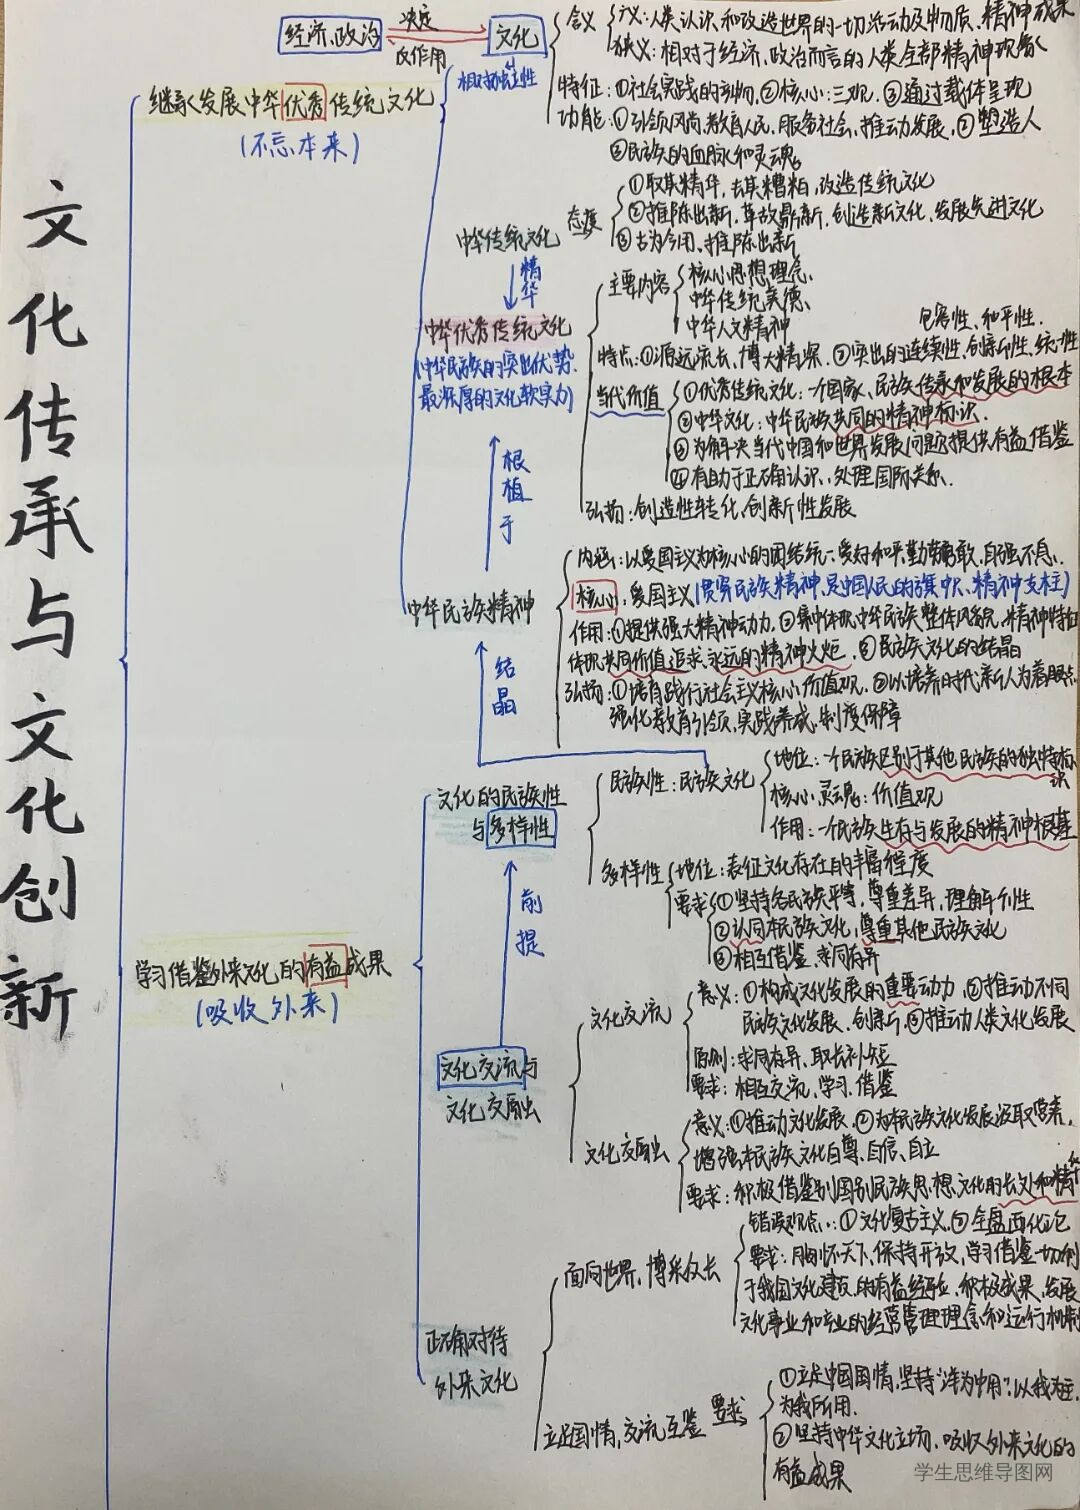 文化传承与文化创新
经济、政治
决定
反作用
文化
相对独立性
含义
广义:人类认识和改造世界的一切活动及物质、精神成果
狭义:相对于经济、政治而言的人类全部精神现象
特征:①社会实践的产物,②核心:三观,③通过载体呈现
功能:①引领风尚,教育人民,服务社会,推动发展,②塑造人
③民族的血脉和灵魂。
继承发展中华优秀传统文化
(不忘本来)
中华传统文化
态度
①取其精华,去其糟粕,改造传统文化
②推陈出新,革故鼎新,创造新文化,发展先进文化
③古为今用,推陈出新
精华
中华优秀传统文化
(中华民族的突出优势.
最深厚的文化软实力)
主要内容
核心思想理念、
中华传统美德、
中华人文精神
包容性、和平性.
特点:①源远流长,博大精深.②突出的连续性,创新性,统一性
当代价值
①优秀传统文化:一个国家、民族传承和发展的根本
②中华文化:中华民族共同的精神标识.
③为解决当代中国和世界发展问题提供有益借鉴
④有助于正确认识、处理国际关系.
弘扬:创造性转化,创新性发展
根植于
中华民族精神
内涵:以爱国主义为核心的团结统一、爱好和平,勤劳勇敢,自强不息.
核心:爱国主义(贯穿民族精神,是中国人民的旗帜、精神支柱)
作用:①提供强大精神动力,②集中体现中华民族整体风貌,精神特征
体现共同价值追求,永远的精神火炬,③民族文化的结晶
弘扬:①培育践行社会主义核心价值观,②以培养时代新人为着眼点
强化教育引领,实践养成,制度保障
结晶
学习借鉴外来文化的有益成果
(吸收外来)
文化的民族性
与多样性
民族性:民族文化
地位:一个民族区别于其他民族的独特标识
核心、灵魂:价值观
作用:一个民族生存与发展的精神根基
多样性
地位:表征文化存在的丰富程度
要求
①坚持各民族平等,尊重差异,理解个性
②认同本民族文化,尊重其他民族文化
③相互借鉴,求同存异
前提
文化交流与
文化交融
文化交流
意义:①构成文化发展的重要动力,②推动不同
民族文化发展、创新,③推动人类文化发展
原则:求同存异,取长补短
要求:相互交流,学习、借鉴
文化交融
意义:①推动文化发展,②为本民族文化发展汲取营养,
增强本民族文化自尊、自信、自立
要求:积极借鉴别国别民族思想文化的长处和精华
正确对待
外来文化
面向世界,博采众长
错误观点:①文化复古主义,②全盘西化论
要求:胸怀天下,保持开放,学习借鉴一切利
于我国文化建设的有益经验,积极成果,发展
文化事业和产业的经营管理理念和运行机制
立足国情,交流互鉴
要求
①立足中国国情,坚持“洋为中用”,以我为主,
为我所用.
②坚持中华文化立场,吸收外来文化的
有益成果
学生思维导图网